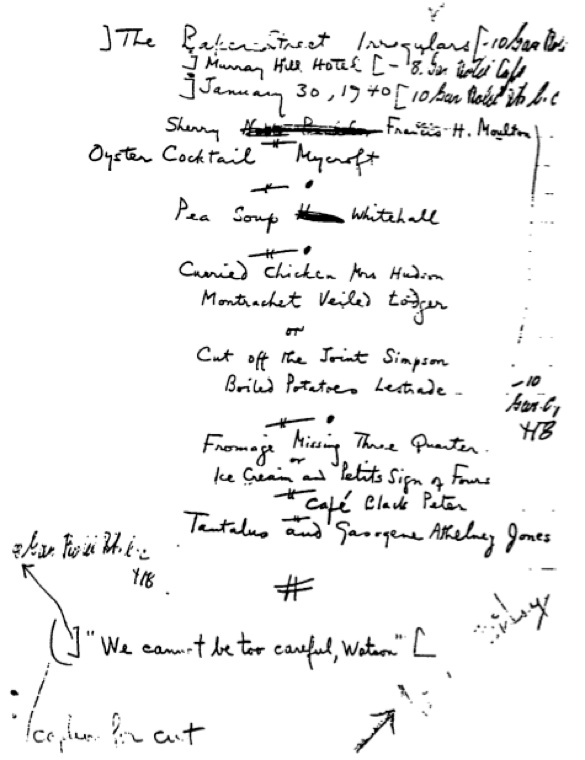 ] The Baker Street Irregulars [ - 10
] Murray Hill Hotel [ - 8
] January 30, 1940 [ 10
Sherry Francis H. Moulton
#
Oyster Cocktail Mycroft
#
Pea Soup Whitehall
#
Curried Chicken Mrs Hudson
Montrachet Veiled Lodger
or
Cut off the Joint Simpson
Boiled Potatoes Lestrade
- 10
HB
#
Fromage Missing Three Quarter
or
Ice Cream and Petits Sign of Fours
#
Café Black Peter
#
Tantalus and Gasogene Athelney Jones
#
( ] "We cannot be too careful, Watson" [
for cut